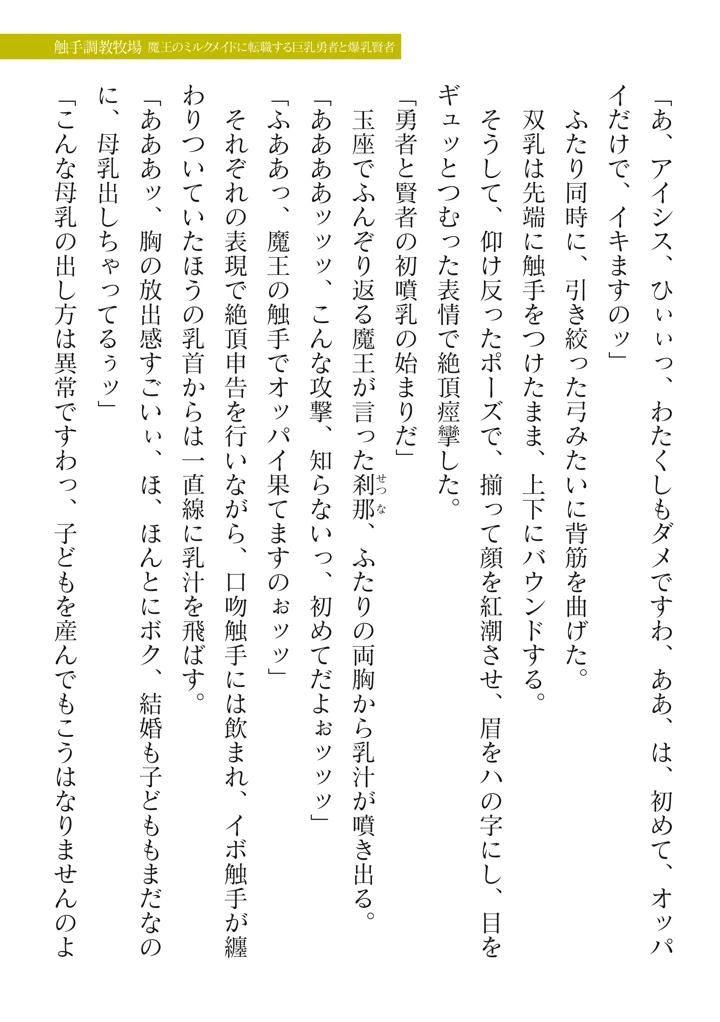 触手調教牧場 魔王のミルクメイドに転職する巨乳勇者と爆乳賢者
「あ、アイシス、ひぃぃっ、わたくしもダメですわ、ああ、は、初めて、オッパ
イだけで、イキますのッ」
ふたり同時に、引き絞った弓みたいに背筋を曲げた。
双乳は先端に触手をつけたまま、上下にバウンドする。
そうして、仰け反ったポーズで、揃って顔を紅潮させ、眉をハの字にし、目を
ギュッとつむった表情で絶頂痙攣した。
「勇者と賢者の初噴乳の始まりだ」
玉座でふんぞり返る魔王が言った刹那、ふたりの両胸から乳汁が噴き出る。
せつな
「ああああッッッ、こんな攻撃、知らないっ、初めてだよぉッッッ」
「ふああっ、魔王の触手でオッパイ果てますのぉッッ」
それぞれの表現で絶頂申告を行いながら、口吻触手には飲まれ、イボ触手が纏
わりついていたほうの乳首からは一直線に乳汁を飛ばす。
「あああッ、胸の放出感すごいぃ、ほ、ほんとにボク、結婚も子どももまだなの
に、母乳出しちゃってるぅッ」
「こんな母乳の出し方は異常ですわっ、子どもを産んでもこうはなりませんのよ